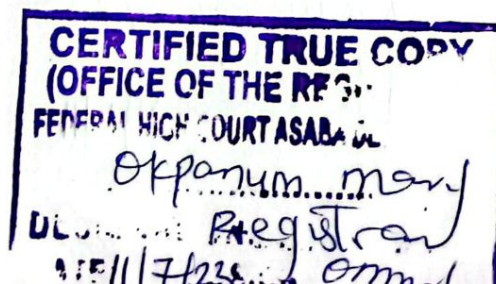 CERTIFIED TRUE COPY
(OFFICE OF THE
FEDERAL HIGH COURT ASABA
Okpanum mary
Registrar
11/7/22